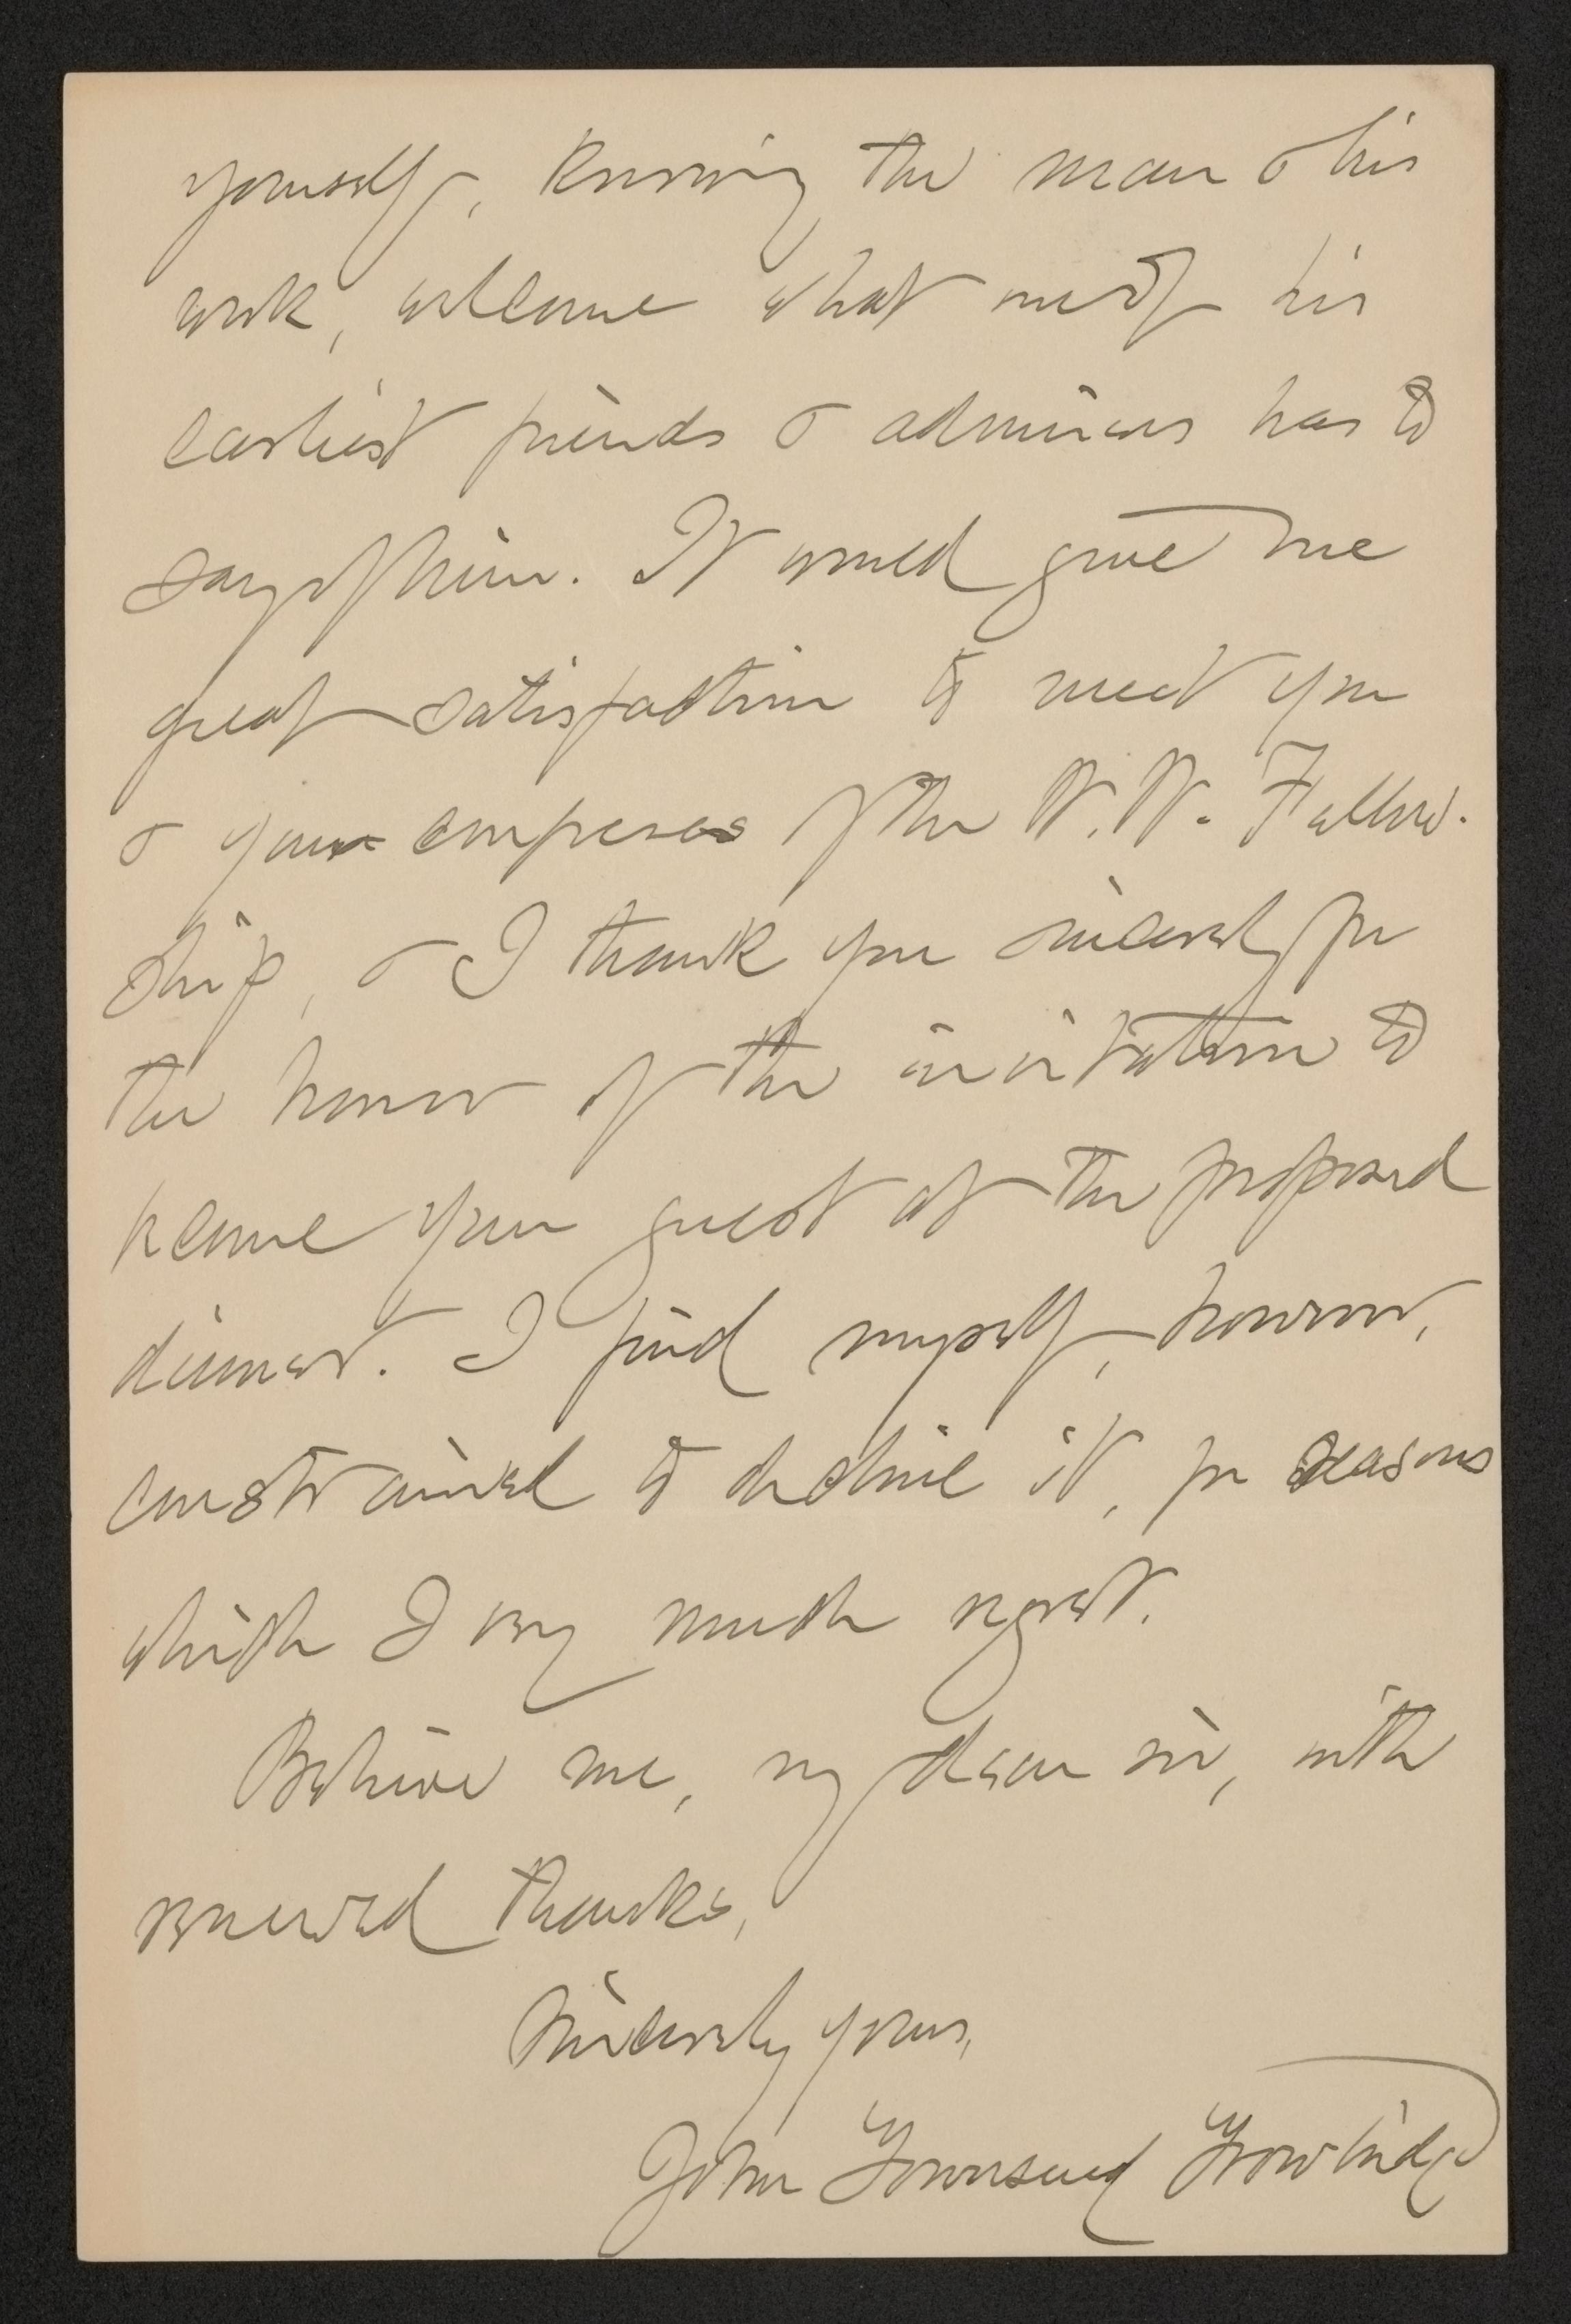 yourself, knowing the man & his
work, welcome what one of his
earliest friends & admirers has to
say of him. It would give me
great satisfaction to meet you
& your compeers of the W. W. Fellow-
ship, & I thank you sincerely for
the honor of the invitation to
become your guest at the proposed
dinner. I find myself, however,
constrained to decline it, for reasons
which I very much regret.
Believe me, my dear sir, with
renewed thanks,
Sincerely yours,
John Townsend Trowbridge